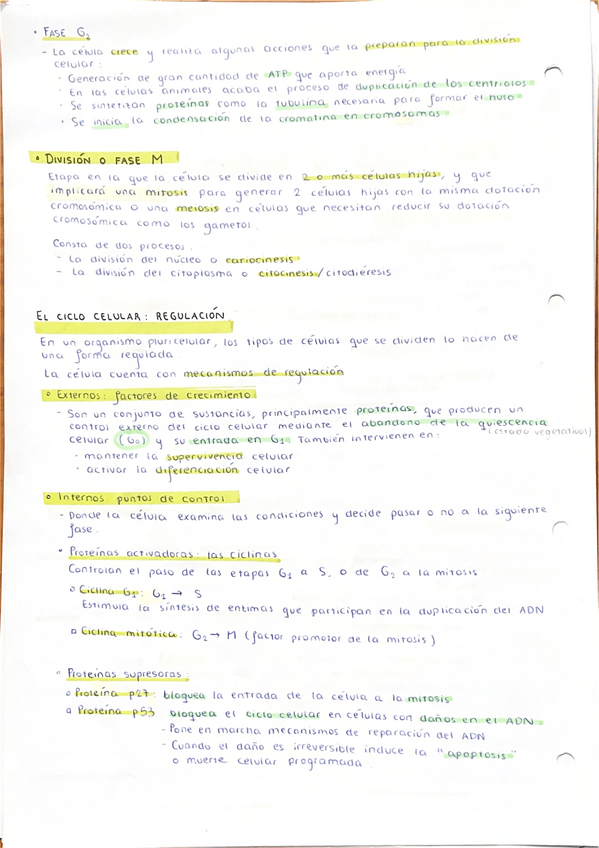 · FASE G2
- La célula crece y realiza algunas acciones que la preparan para la división
celular:
· Generación de gran cantidad de ATP que aporta energía
· En las células animales acaba el proceso de duplicación de los centriolos
· Se sintetizan proteínas como la tubulina necesaria para formar el huso
· Se inicia la condensación de la cromatina en cromosomas
• DIVISIÓN O FASE M
Etapa en la que la célula se divide en 2 o más células hijas, y que
implicará una mitosis para generar 2 células hijas con la misma dotación
cromosómica o una meiosis en células que necesitan reducir su dotación
cromosómica como los gametos.
Consta de dos procesos.
- La división del núcleo o cariocinesis
- La división del citoplasma o citocinesis/citodiéresis
EL CICLO CELULAR: REGULACIÓN
En un organismo pluricelular, los tipos de células que se dividen lo hacen de
una forma regulada
La célula cuenta con mecanismos de regulación
• Externos: factores de crecimiento
- Son un conjunto de sustancias, principalmente proteínas, que producen un
control externo del ciclo celular mediante el abandono de la quiescencia
celular (G0) y su entrada en G1. También intervienen en: (estado vegetativos)
· mantener la supervivencia celular
· activar la diferenciación celular
• Internos puntos de control
- Donde la célula examina las condiciones y decide pasar o no a la siguiente
fase.
• Proteínas activadoras: las ciclinas
Controlan el paso de las etapas G1 a S, o de G2 a la mitosis
▫ Ciclina G1: G1 → S
Estimula la síntesis de enzimas que participan en la duplicación del ADN
▫ Ciclina mitótica: G2 → M (factor promotor de la mitosis)
• Proteínas supresoras:
▫ Proteína p27: bloquea la entrada de la célula a la mitosis
▫ Proteína p53 bloquea el ciclo celular en células con daños en el ADN
- Pone en marcha mecanismos de reparación del ADN
- Cuando el daño es irreversible induce la "apoptosis"
o muerte celular programada.